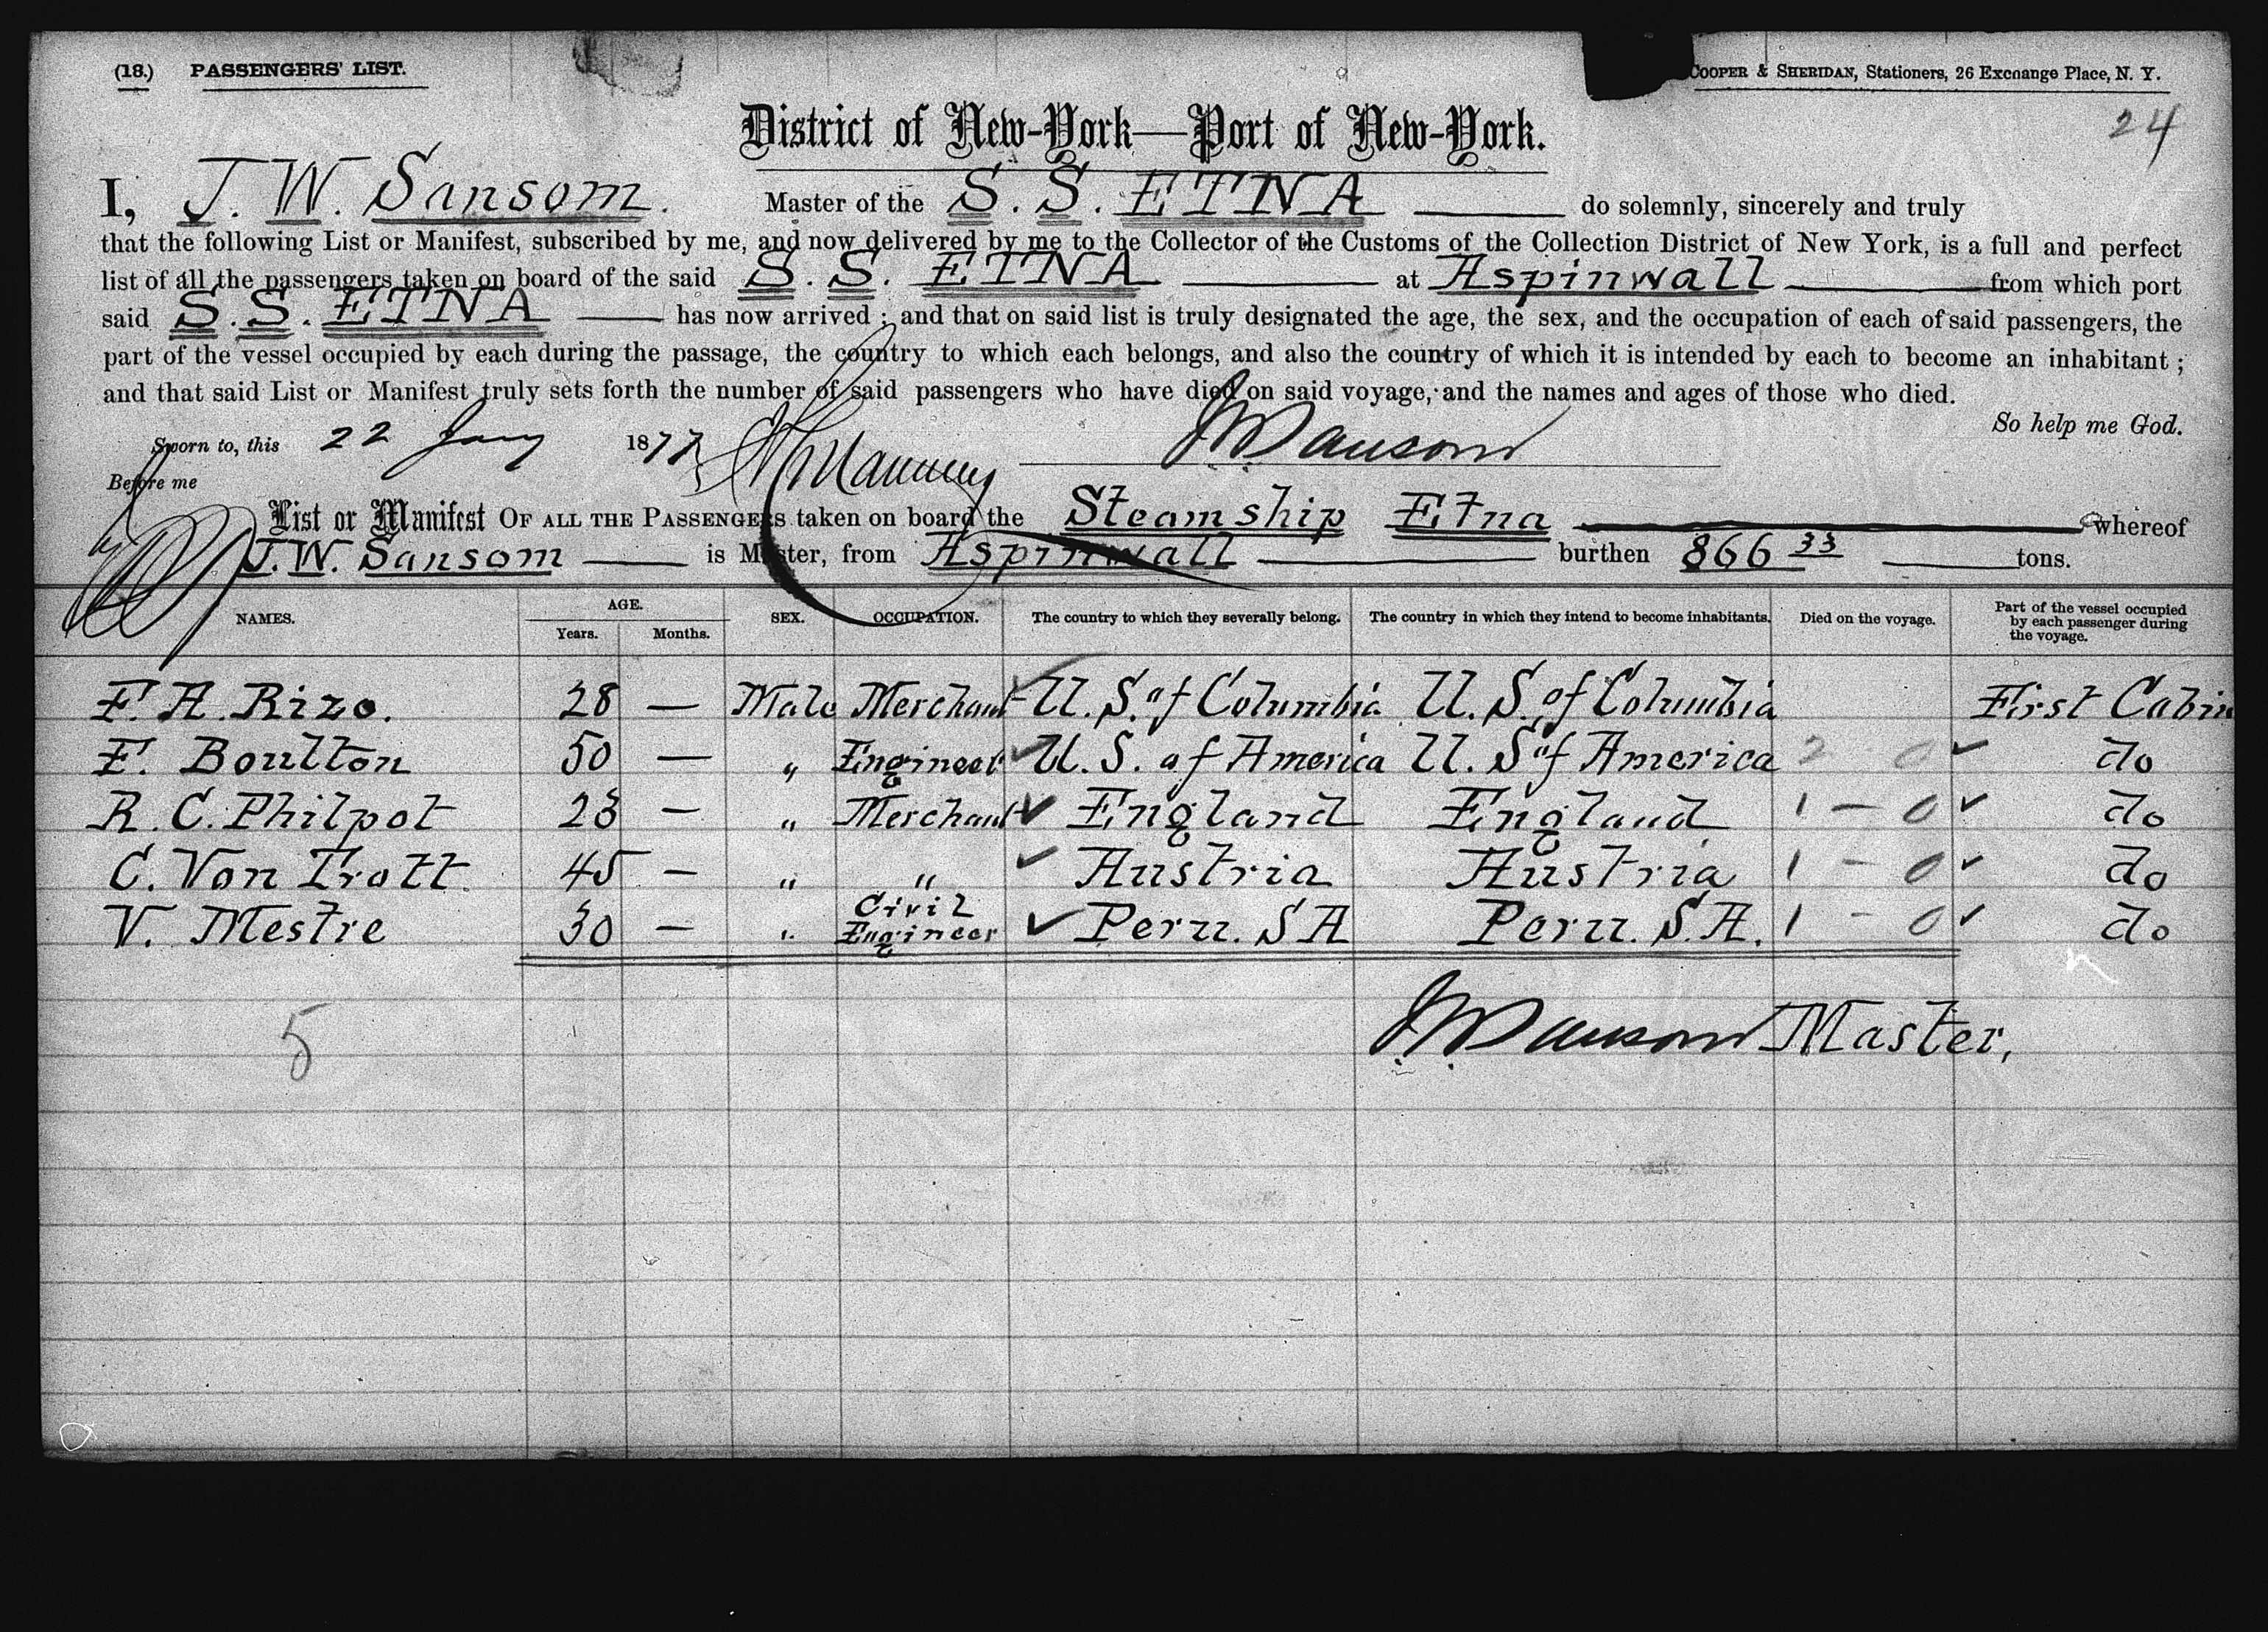 (18.) PASSENGERS' LIST. COOPER & SHERIDAN, Stationers, 26 Exchange Place, N. Y.
24
District of New-York—Port of New-York.
I, J. W. Sansom. Master of the S. S. ETNA do solemnly, sincerely and truly
that the following List or Manifest, subscribed by me, and now delivered by me to the Collector of the Customs of the Collection District of New York, is a full and perfect
list of all the passengers taken on board of the said S. S. ETNA at Aspinwall from which port
said S. S. ETNA has now arrived ; and that on said list is truly designated the age, the sex, and the occupation of each of said passengers, the
part of the vessel occupied by each during the passage, the country to which each belongs, and also the country of which it is intended by each to become an inhabitant ;
and that said List or Manifest truly sets forth the number of said passengers who have died on said voyage, and the names and ages of those who died.
So help me God.
Sworn to, this 22 Jany 1877 JW Sansom
Before me
List or Manifest OF ALL THE PASSENGERS taken on board the Steamship Etna whereof
J. W. Sansom is Master, from Aspinwall burthen 866 33 tons.
NAMES. AGE. Years. Months. SEX. OCCUPATION. The country to which they severally belong. The country in which they intend to become inhabitants. Died on the voyage. Part of the vessel occupied by each passenger during the voyage.
F. A. Rizo. 28 — Male Merchant U. S. of Columbia U. S. of Columbia First Cabin
E. Boulton 50 — " Engineer U. S. of America U. S of America 2 0 do
R. C. Philpot 23 — " Merchant England England 1 — 0 do
C. Von Trott 45 — " " Austria Austria 1 — 0 do
V. Mestre 30 — " Civil Engineer Peru. S A Peru. S. A. 1 — 0 do
5
JW Sansom Master,